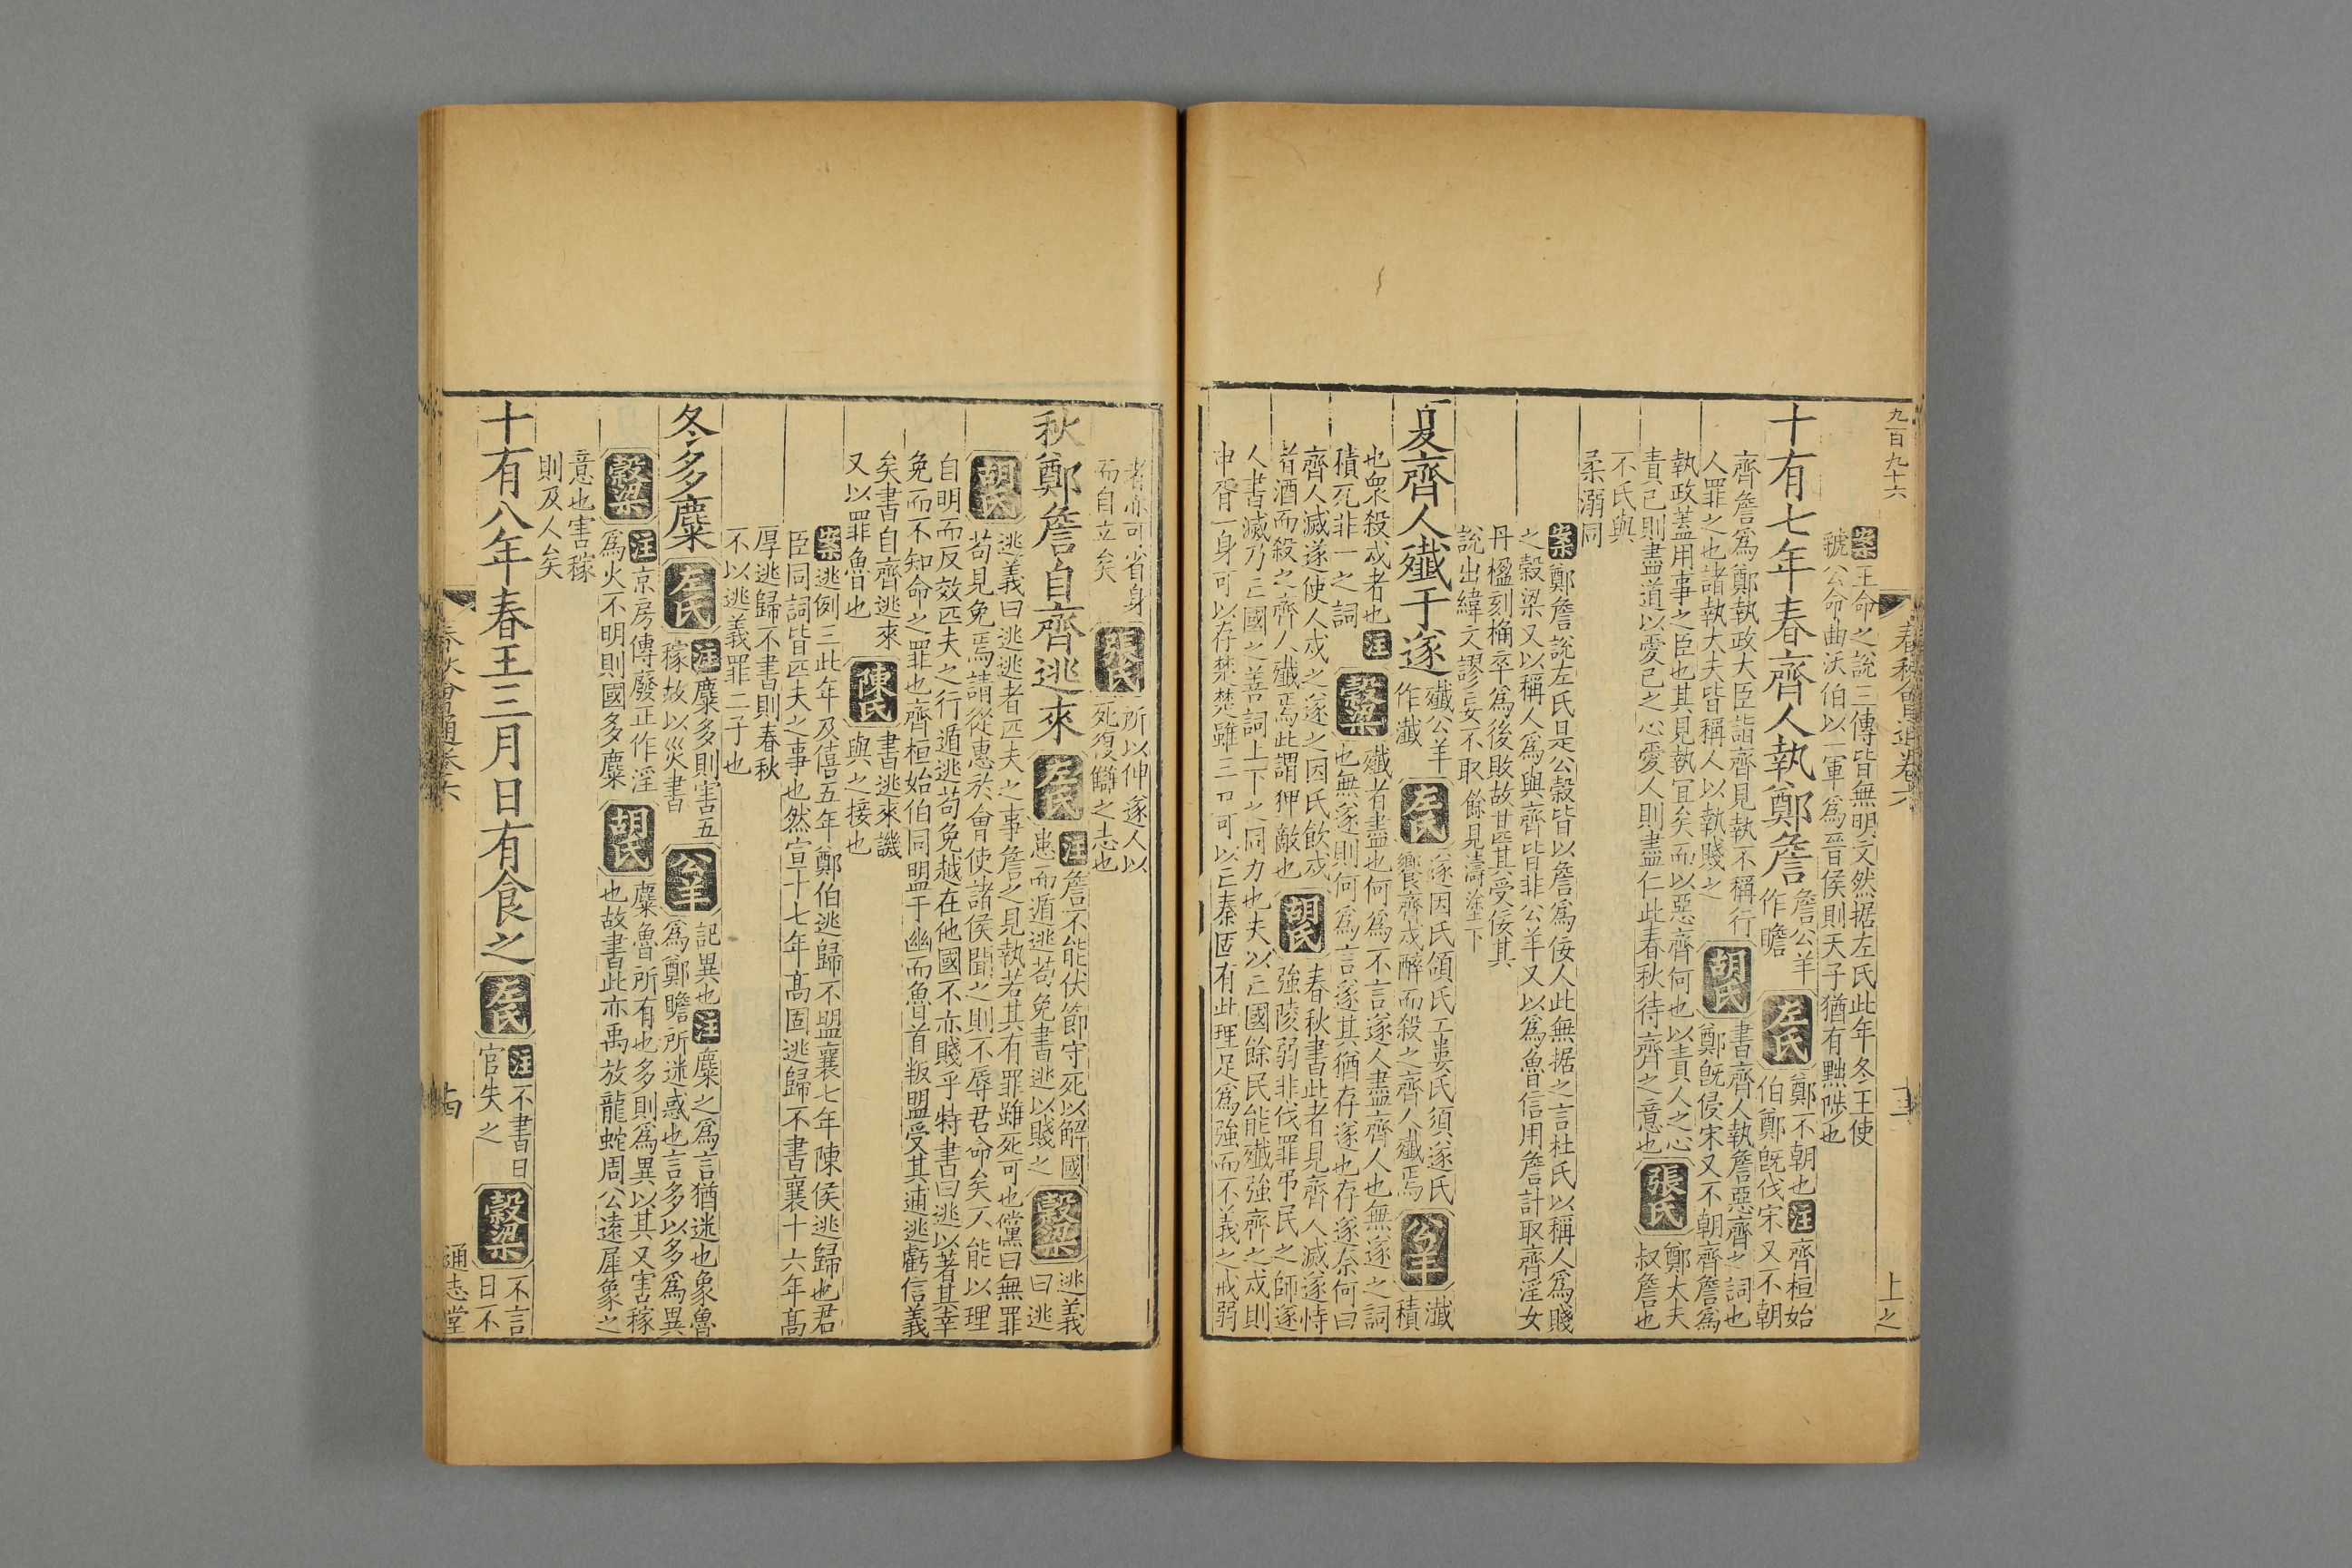 九百九十六
春秋會通卷六
十三
上之
案王命之說三傳皆無明文然据左氏此年冬王使
虢公命曲沃伯以一軍為晉侯則天子猶有黜陟也
十有七年春齊人執鄭詹
詹公羊
作瞻
左氏
鄭不朝也注齊桓始
伯鄭旣伐宋又不朝
齊詹為鄭執政大臣詣齊見執不稱行
人罪之也諸執大夫皆稱人以執賤之
胡氏
書齊人執詹惡齊之詞也
鄭旣侵宋又不朝齊詹為
執政蓋用事之臣也其見執冝矣而以惡齊何也以責人之心
責己則盡道以愛己之心愛人則盡仁此春秋待齊之意也
張氏
鄭大夫
叔詹也
不氏與
柔溺同
案鄭詹說左氏是公穀皆以詹為佞人此無据之言杜氏以稱人為賤
之穀梁又以稱人為與齊皆非公羊又以為魯信用詹計取齊淫女
丹楹刻桷卒為後敗故甘氏其受佞其
說出緯文謬妄不取餘見濤塗下
夏齊人殲于遂
殲公羊
作瀸
左氏
遂因氏頜氏工婁氏須遂氏
饗齊戍醉而殺之齊人殲焉
公羊
瀸
積
也衆殺戍者也注
積死非一之詞
穀梁
殲者盡也何為不言遂人盡齊人也無遂之詞
也無遂則何為言遂其猶存遂也存遂奈何曰
齊人滅遂使人戍之遂之因氏飲戍
者酒而殺之齊人殲焉此謂狎敵也
胡氏
春秋書此者見齊人滅遂恃
強陵弱非伐罪弔民之師遂
人書滅乃亡國之善詞上下之同力也夫以亡國餘民能殲強齊之戍則
申胥一身可以存楚楚雖三戸可以亡秦固有此理足為強而不義之戒弱
者亦可省身
而自立矣
張氏
所以伸遂人以
死復讎之志也
秋鄭詹自齊逃來
左氏
注詹不能伏節守死以解國
患而遁逃苟免書逃以賤之
穀梁
逃義
曰逃
胡氏
逃義曰逃逃者匹夫之事詹之見執若其有罪雖死可也儻曰無罪
苟見免焉請從惠於會使諸侯聞之則不辱君命矣不能以理
自明而反效匹夫之行遁逃苟免越在他國不亦賤乎特書曰逃以著其幸
免而不知命之罪也齊桓始伯同盟于幽而魯首叛盟受其逋逃虧信義
矣書自齊逃來
又以罪魯也
陳氏
書逃來譏
與之接也
案逃例三此年及僖五年鄭伯逃歸不盟襄七年陳侯逃歸也君
臣同詞皆匹夫之事也然宣十七年髙固逃歸不書襄十六年髙
厚逃歸不書則春秋
不以逃義罪二子也
冬多麋
左氏
注麋多則害五
稼故以災書
公羊
記異也注麋之為言猶迷也象魯
為鄭瞻所迷惑也言多以多為異
穀梁
注京房傳廢正作淫
為火不明則國多麋
胡氏
麋魯所有也多則為異以其又害稼
也故書此亦禹放龍蛇周公遠犀象之
意也害稼
則及人矣
十有八年春王三月日有食之
左氏
注不書日
官失之
穀梁
不言
日不
春秋會通卷六
十四
通志堂